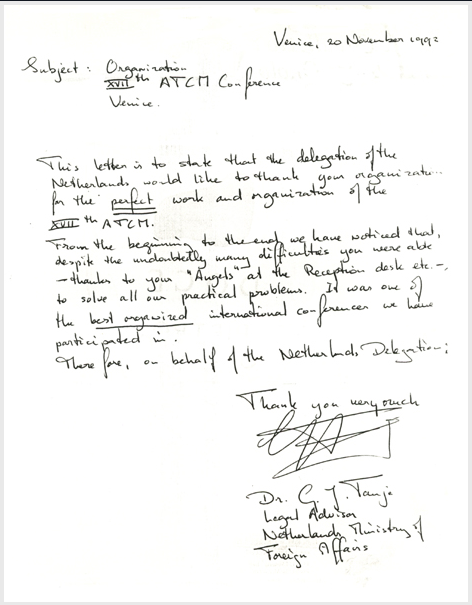 Venice, 20 November 1992
Subject: Organization
XVIIth ATCM Conference
Venice.
This letter is to state that the delegation of the
Netherlands would like to thank your organizatio...
for the perfect work and organization of the
XVIIth ATCM.
From the beginning to the end we have noticed that,
despite the undoubtedly many difficulties you were able
- thanks to your "Angels" at the Reception desk etc. -,
to solve all our practical problems. It was one of
the best organized international conferences we have
participated in.
Therefore, on behalf of the Netherlands Delegation:
Thank you very much
Dr. G. J. Tanja
Legal Advisor
Netherlands Ministry of
Foreign Affairs